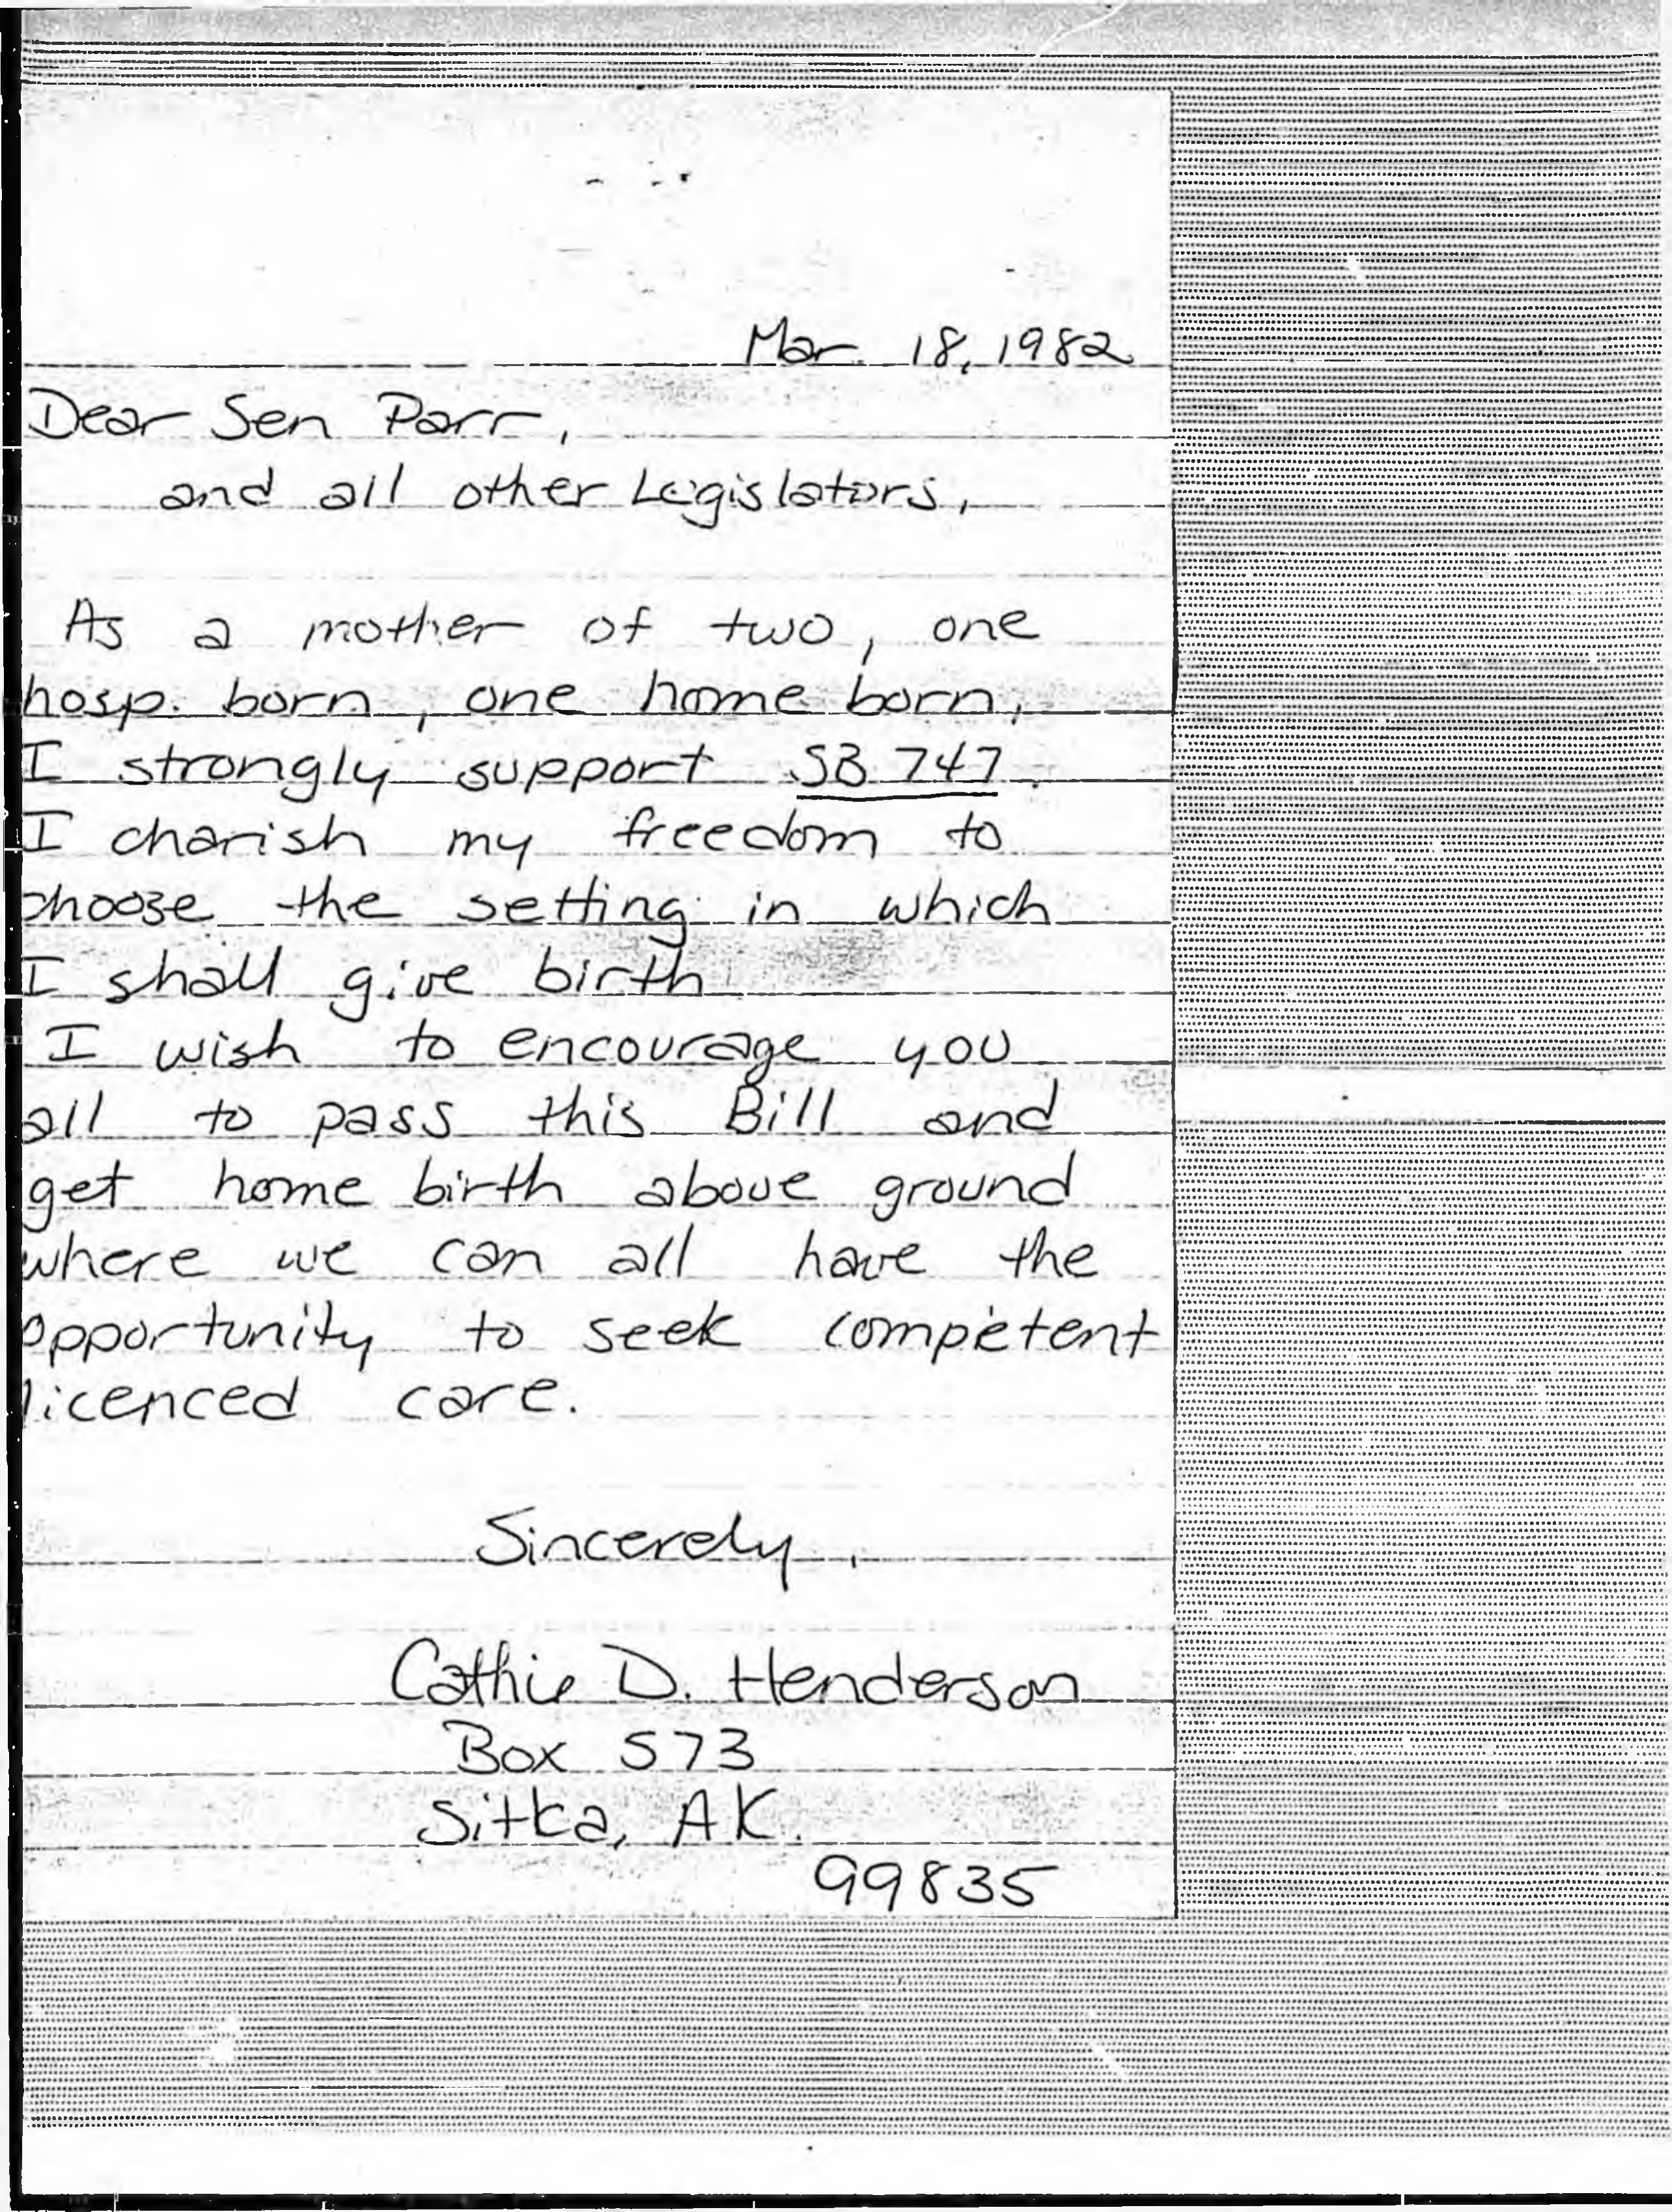 Mar. 18, 1982
Dear Sen Parr,
and all other Legislators,
As a mother of two, one
hosp. born, one home born,
I strongly support SB 747.
I charish my freedom to
choose the setting in which
I shall give birth
I wish to encourage you
all to pass this Bill and
get home birth above ground
where we can all have the
opportunity to seek competent
licenced care.
Sincerely,
Cathie D. Henderson
Box 573
Sitka, AK.
99835